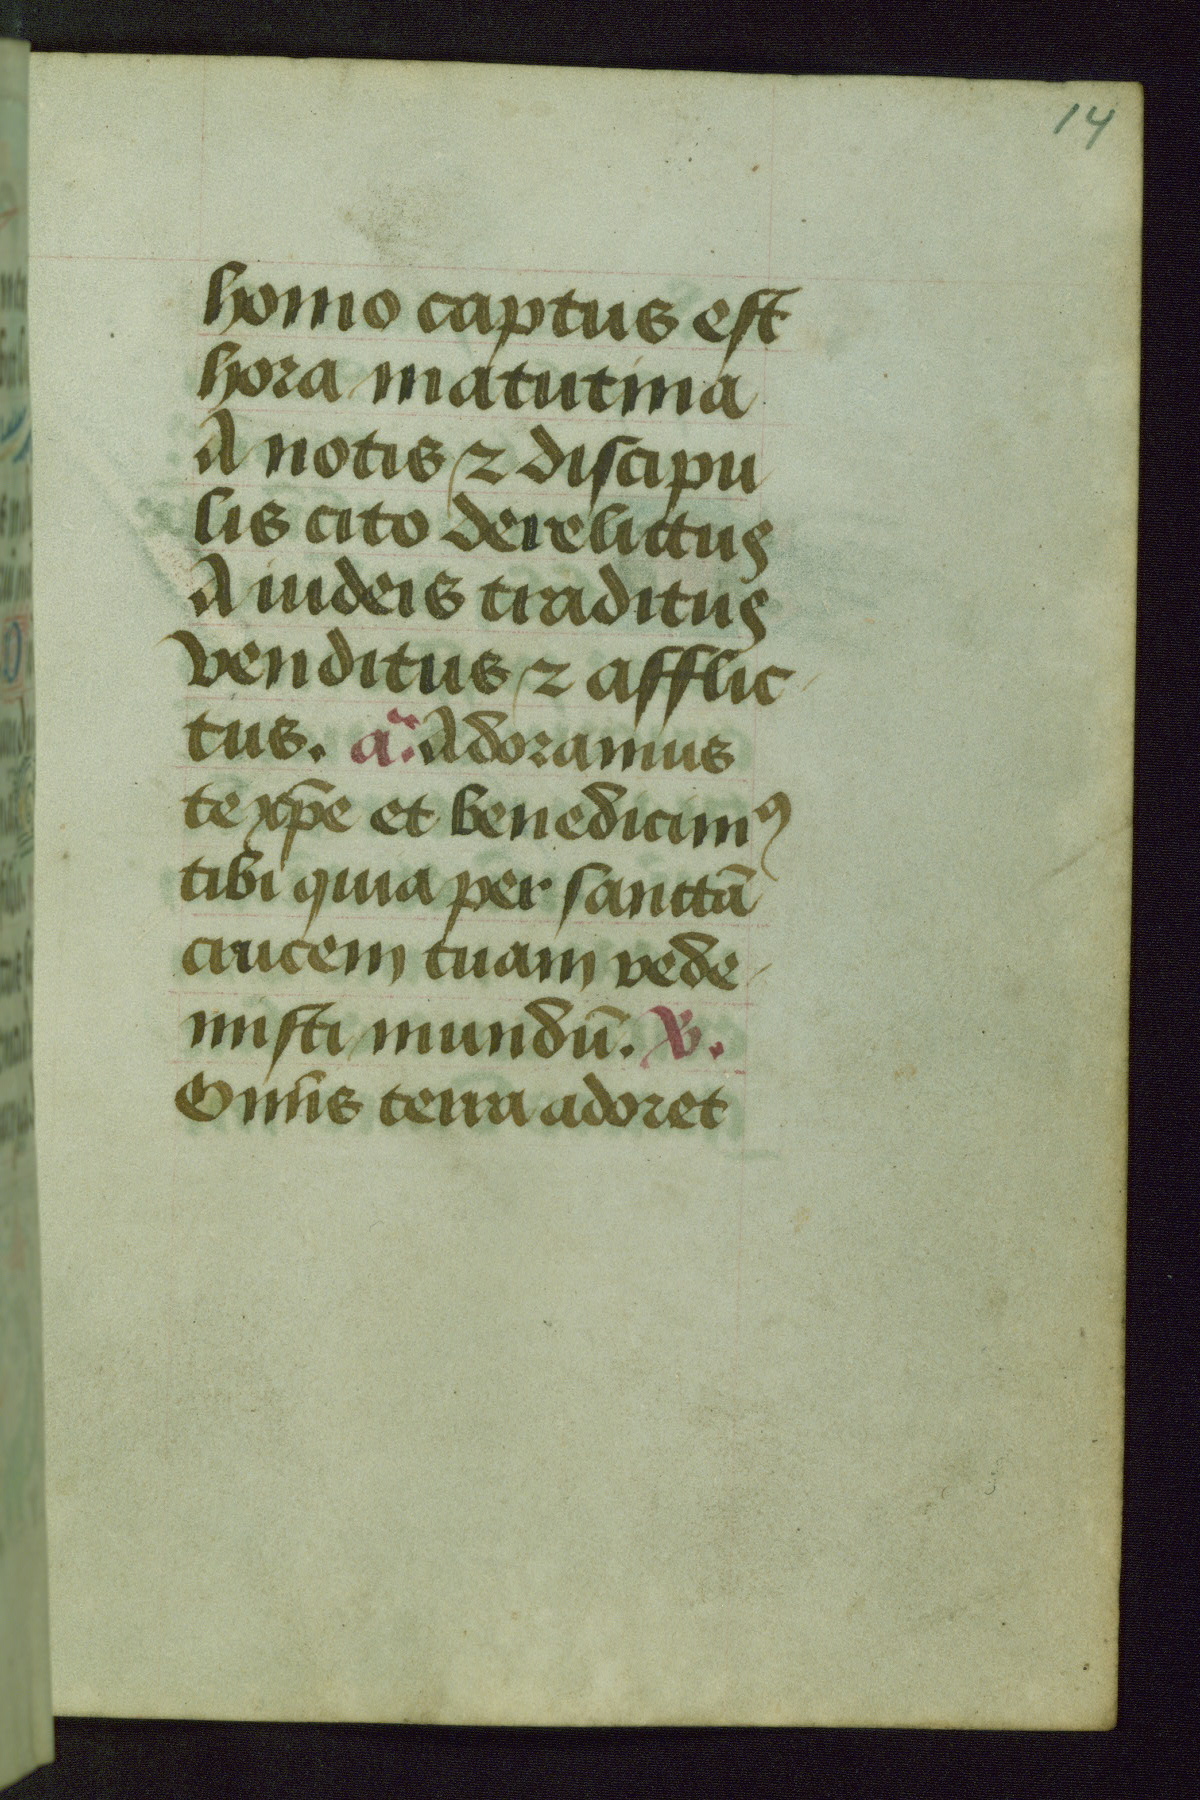 14
homo captus est
hora matutina
A notis ⁊ discipu
lis cito derelictus
A iudeis traditus
venditus ⁊ afflic
tus. a͛. Adoramus
te xp̄e et benedicimꝰ
tibi quia per sanctā
crucem tuam rede
misti mundū. V.
Om̄is terra adoret